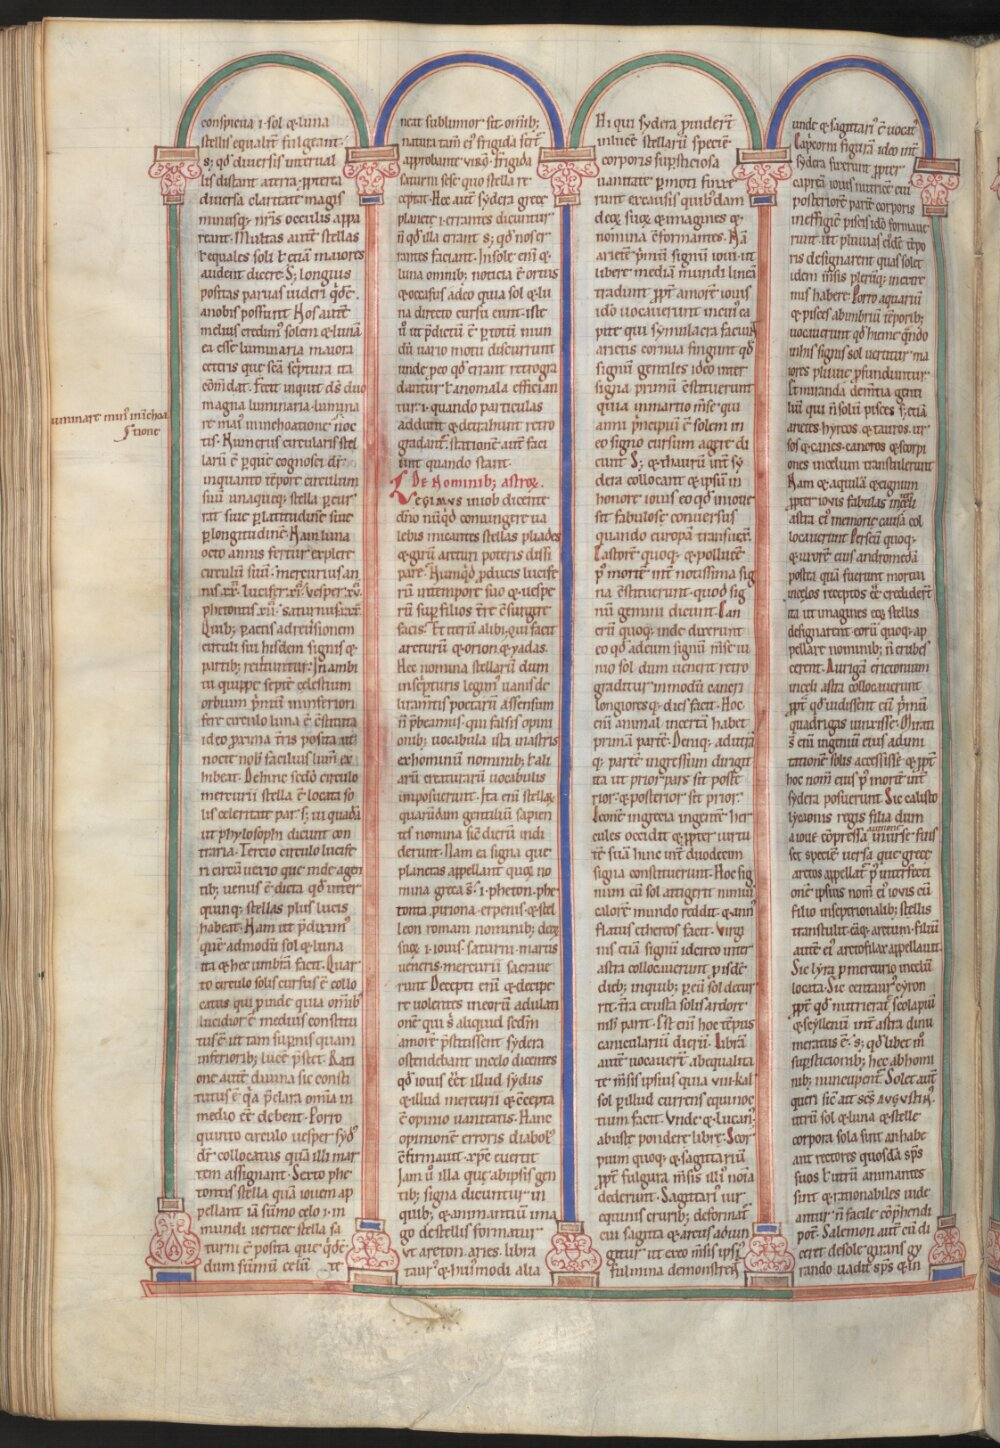 conspicua ·i· sol & luna
stellis equalit̄ fulgeant·
s; qđ diuersis interual
lis distant a terra· ꝓpterea
diuersa claritate magis
minusq; nr̄is occulis appa
reant· Multas autē stellas
t̄ equales soli t̄ etiā maiores
audent dicere· S; longius
positas paruas uideri
a nobis possunt Nos autē
melius credim᷒ solem & lunā
ea esse luminaria maiora
ceteris que scā sc̄ptura ita
cōm̄dat· Fecit inquit d̄s duo
magna luminaria· lumina
re mai᷒ in inchoatione noc
tis· Numerus circularis stel
larū ē per quē cognosci dr̄·
inquanto tēpore circulum
suū unaqueq; stella ꝑcur
rat siue ꝑ latitudinē siue
ꝑ longitudinē· Nam luna
octo annis fertur explere
circulū suū· mercurius an
nis xx̄· lucifer ix̄· uesper xv̄·
phetontis xii· saturnus xxx̄
Quib; ꝑactis ad reuersionem
circuli sui hisdem signis &
partib; reuertuntur· In ambi
tu quippe septē celestium
orbium ꝓmū in inferiori
fere circulo luna ē c̄stituta
ideo proxima t̄ris posita ut
nocte nob̄ facilius lum̄ ex
hibeat· Dehinc sc̄do circulo
mercurii stella ē locata so
lis celeritate par s; ui quadā
ut philosophi dicunt con
traria· Tercio circulo lucife
ri circū uectio que inde agen
tib; uenus ē dicta qđ inter
quinq; stellas plus lucis
habeat· Nam ut p̄dixim᷒
quē admodū sol & luna
ita & hec umbrā facit· Quar
to circulo solis cursus ē collo
catus qui ꝓinde quia om̄ib᷒
lucidior ē medius constitu
tus ē ut tam supnis quam
inferiorib; lucē p̄stet· Rati
one autē diuina sic consti
tutus ē qa p̄clara omīa in
medio eē debent· Porro
quinto circulo uesper syd᷒
dr̄ collocatus quā illi mar
tem assignant· Sexto phe
tontis stella quā iouem ap
pellant iā sūmo celo ·i· in
mundi uertice stella sa
turni ē posita que
dum sūmū celū te
luminare min᷒ in inchoa
tione
neat sublimior sit om̄ib;
natura tam̄ ei᷒ frigida fert̄
approbante uirgō· frigida
saturni sese quo stella re
ceptat· Hec aut̄ sydera grece
planete ·i· errantes dicuntur
n̄ qđ illa errant s; qđ nos er
rantes faciant· In sole eni̅ &
luna omnib; noticia ē ortus
& occasus adeo quia sol & lu
na directo cursu eunt· iste
ū ut p̄dictū ē ꝑ totū mun
dū uario motu discurrunt
unde ꝑeo qđ errant retrogra
dantur t̄ anomala efficiun
tur ·i· quando particulas
addunt & detrahunt retro
gradant̄· stationē aut̄ faci
unt quando stant·
De nominib; astroꝝ.
Legimus in iob dicente
dn̄o nūqđ coniungere ua
lebis micantes stellas pliades
& girū arcturi poteris dissi
pare· Nunqđ ꝓducis lucife
rū in tempore suo & uespe
rū sup filios t̄re c̄surgere
facis· Et iterū alibi· qui facit
arcturū & orion & yadas·
Hec nomina stellarū dum
in scripturis legim᷒ uanis de
liramtis poetarū assensum
n̄ p̄beamus· qui falsis opini
onib; uocabula ista in astris
ex hominū nominib; t̄ ali
arū creaturarū uocabulis
imposuerunt· Ita eni̅ stellaꝝ
quarūdam gentiliū sapien
tes nomina sic̄ dierū indi
derunt· Nam ea signa que
planetas appellant quoꝝ no
mina greca s̄· ·i· pheton· phe
tonta· piriona· erpenis· & stel
leon romani nominib; deoꝝ
suoꝝ ·i· iouis· saturni· martis
ueneris· mercurii sacraue
runt· Decepti eni̅ & decipe
re uolentes in eorū adulati
onē qui s̄ aliquid sed̄m
amorē p̄stitissent sydera
ostendebant in celo dicentes
qđ iouis eēt illud sydus
& illud mercurii & c̄cepta
ē opinio uanitatis· Hanc
opinionē erroris diabol᷒
c̄firmauit xp̄c euertit
Iam ū illa que ab ipsis gen
tib; signa dicuntur in
quib; & animantiū ima
go de stellis formatur
ut areton· aries· libra
taur᷒ & hui᷒modi alia
Hi qui sydera ꝓuidert̄
in luc̄e stellarū specie̅
corporis supsticiosa
uanitate p̄moti finxe
runt ex causis quib᷒dam
deoꝝ suoꝝ & imagines &
nomina c̄formantes· Nā
arietē p̄mū signū ioui ut
libere mediā mundi lineā
tradunt ꝓpt̄ amorē iouis
ido uocauerunt in cui᷒ ca
pite qui symulacra faciunt
arietis cornua fingunt qđ
signū gentiles ideo inter
signa primū c̄stituerunt
quia in martio m̄se qui
anni principiū ē solem in
eo signo cursum agere di
cunt S; & thaurū int̄ sy
dera collocant & ipsū in
honore iouis eo qđ in boue
sit fabulose conuersus
quando europā transuex̄·
Castore̅ quoq; & pollucē
p᷒ mortē int̄ notissima sig
na c̄stituerunt· quod sig
nū gemini dicunt· Can
crū quoq; inde dixerunt
eo qđ ad eum signū m̄se iu
nio sol dum uenerit retro
graditur in modū cancri
longiores q; dies facit· Hoc
eni̅ animal incertā habet
primā partē· Deniq; ad utrāq;
partē ingressum dirigit
ita ut prior pars sit poste
rior· & posterior sit prior·
Leonē in grecia ingentē her
cules occidit & ꝓpter uirtu
tē suā hunc int̄ duodecim
signa constituerunt· Hoc sig
num cū sol attigerit nimiū
calorē mundo reddit· & annu᷒
flatus etheros facit· Virg̅
nis etiā signū idcirco inter
astra collocauerunt ꝑ isdē
dieb; in quib; ꝑ eū sol decur
rit· t̄ra exusta solis ardore
nih̄ parit· Est eni̅ hoc tēpus
canicularū dierū· Librā
autē uocauert̄ ab equalita
te m̄sis ipsius quia viii· kal̄·
sol ꝑ illud currens equinoc
tium facit· Vnde & lucan᷒
ab iuste pondere libre· Scor
pium quoq; & sagittariū
ꝓpt̄ fulgura m̄sis illi᷒ noīa
dederunt· Sagittari᷒ uir
equinis cruribꝫ deformat̄
cui sagitta & arcus adiun
gitur ut ex eo m̄sis ipsi᷒
fulmina demonstrent̄
unde & sagittari᷒ ē uocat᷒
Capcorni figurā ideo int̄
sydera finxerunt ꝓpter
caprea iouis nutricē cui᷒
posteriore partē corporis
in effigiē piscis ido formaue
runt· ut pluuias ei᷒dē tēpo
ris designarent quas solet
idem m̄sis plerūq; in extre
mis habere· Porro aquariū
& pisces ab imbriū tēporib;
uocauerunt qđ hieme qn̄do
in his signis sol uertitur ma
iores pluuie ꝓfunduntur·
Et miranda dem̄tia genti
liū qui n̄ solū pisces s; etiā
arietes hyrcos & tauros· ur
sos & canes· cancros & scorpi
ones in celum transtulerunt
Nam & aquilā & cignum
ꝓpter iouis fabulas in celi
astra ei᷒ memorie causa col
locauerunt· Perseū quoq;
& uxore̅ eius andromedā
postea quā fuerunt mortui
in celos receptos eē crediderīt
ita ut imagines eoꝝ stellis
designarent eorū quoq; ap
pellare nominib; n̄ erubes
cerent· Aurigā erictonium
in celi astra collocauerunt
ꝓpt̄ qđ uidissent eū p̄mū
quadrigas iunxisse· Mirati
s̄ eni̅ ingeniū eius ad imi
tationē solis accessisse & ꝓpt̄
hoc nom̄ eius p᷒ mortē int̄
sydera posuerunt· Sic calisto
lycaonis regis filia dum
a ioue c̄pressa a iunone in urse fuis
set specie̅ uersa que grece
arctos appellat̄ p᷒ interfecti
onē ipsius nom̄ ei᷒ iouis cū
filio in septrionalib; stellis
transtulit· eāq; arctum· filiū
autē ei᷒ arctofilax appellauit·
Sic lyra ꝑ mercurio in celū
locata· Sic centaur᷒ cyron
ꝓpt̄ qđ nutrierat̄ scolapiū
& scyllenū int̄ astra dinu
meratus ē· s; qđ libet m̄
supsticionib; hec ab homi
nib; nuncupent̄· Solet aut̄
queri sic̄ ait scs̄ augustin᷒·
utrū sol & luna & stelle
corpora sola sint an habe
ant rectores quosdā sps̄
suos t̄ utrū animantes
sint & rationabiles inde
antur n̄ facile cōp̄hendi
pot̄· Salemon aut̄ cū di
ceret de sole· girans gy
rando uadit sp̄s & in